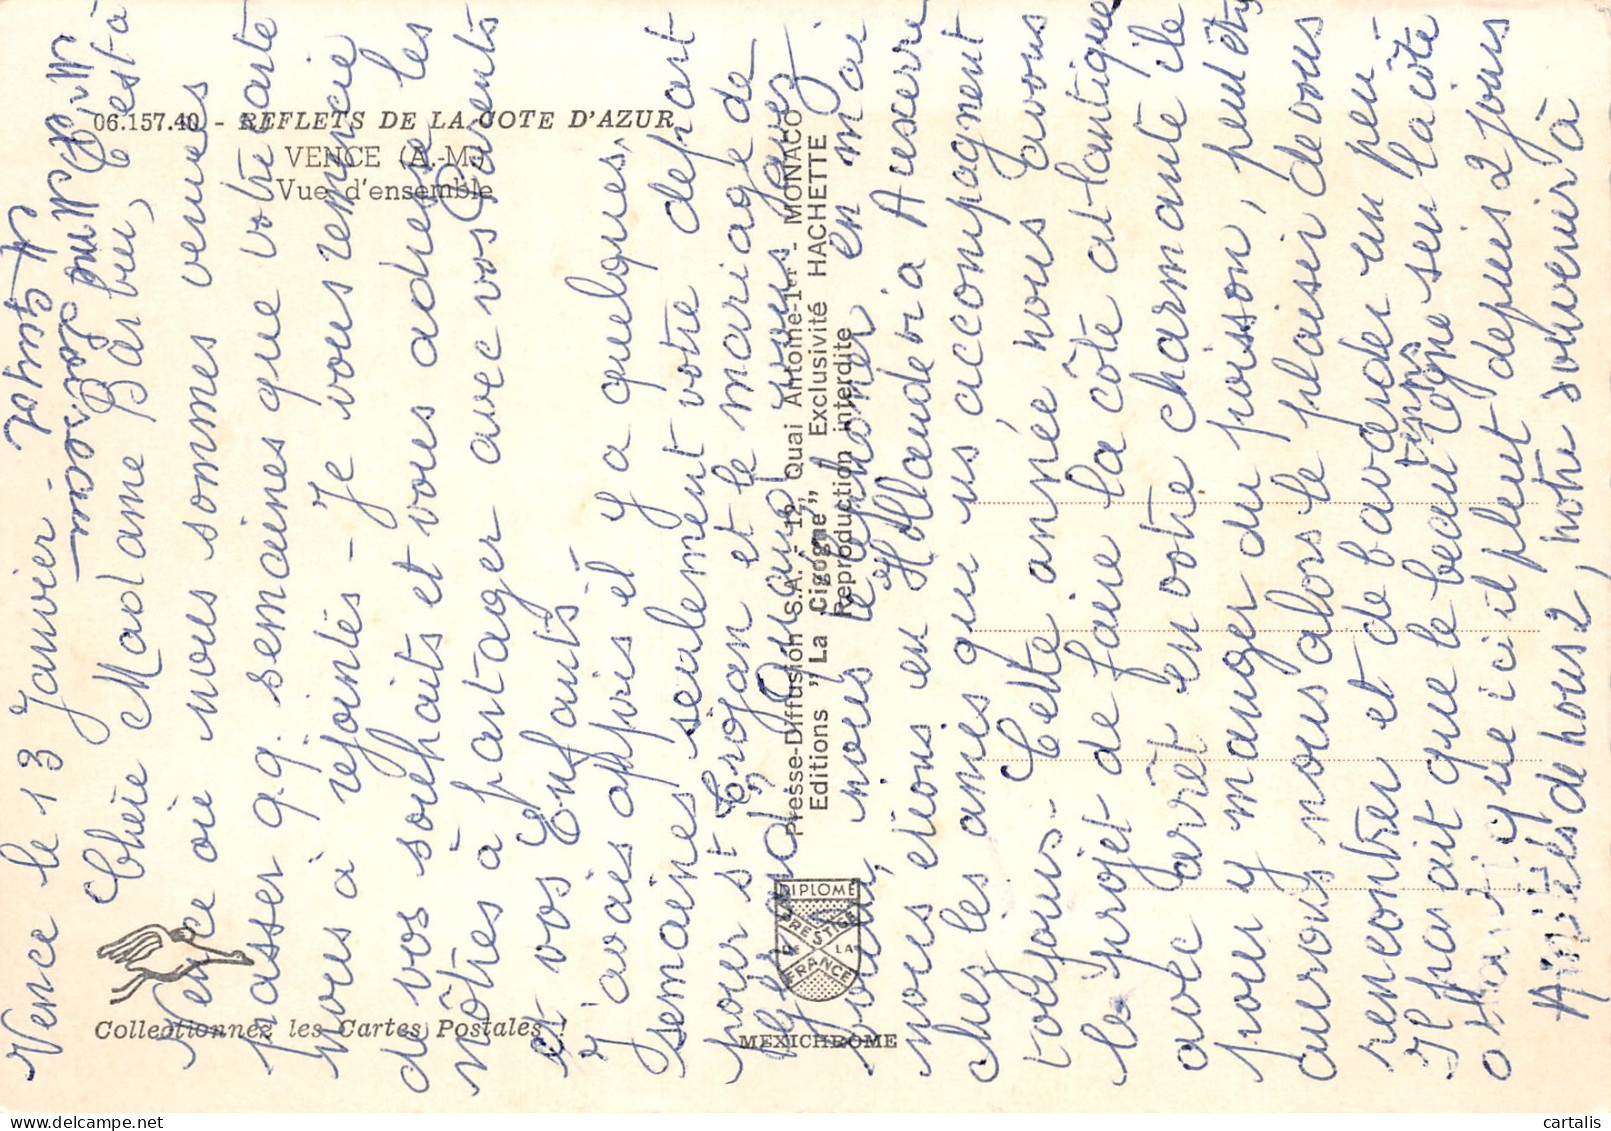 06.157.40 - REFLETS DE LA COTE D'AZUR
VENCE (A.-M.)
Vue d'ensemble
Vence le 13 Janvier
Chère Madame Barbui, C'est à
Vence où nous sommes venues
passer qq. semaines que votre carte
nous à rejointes - Je vous remercie
de vos souhaits et vous adresse les
nôtres à partager avec vos Parents
et vos Enfants -
J'avais appris il y a quelques
semaines seulement votre départ
pour St Trojan et le mariage de
Gérard. Quand vous avez
nous téléphoner en mai
nous étions en Hollande via Auxerre
chez les amies qui ns accompagnent
toujours - Cette année nous avons
le projet de faire la côte atlantique
avec arrêt en votre charmante île
pour y manger du poisson, peut être
aurons nous alors le plaisir de vous
rencontrer et de bavarder un peu
Il parait que le beau temps règne sur la côte
qu'ici il pleut depuis 2 jours
Amitiés de nous 2, notre souvenir à
Mr et Mme
Presse-Diffusion S.A. - 12, Quai Antoine-1er - MONACO
Editions "La Cigogne" Exclusivité HACHETTE
Reproduction interdite
DIPLOME
PRESTIGE
DE LA
FRANCE
Collectionnez les Cartes Postales !
MEXICHROME
cartalis